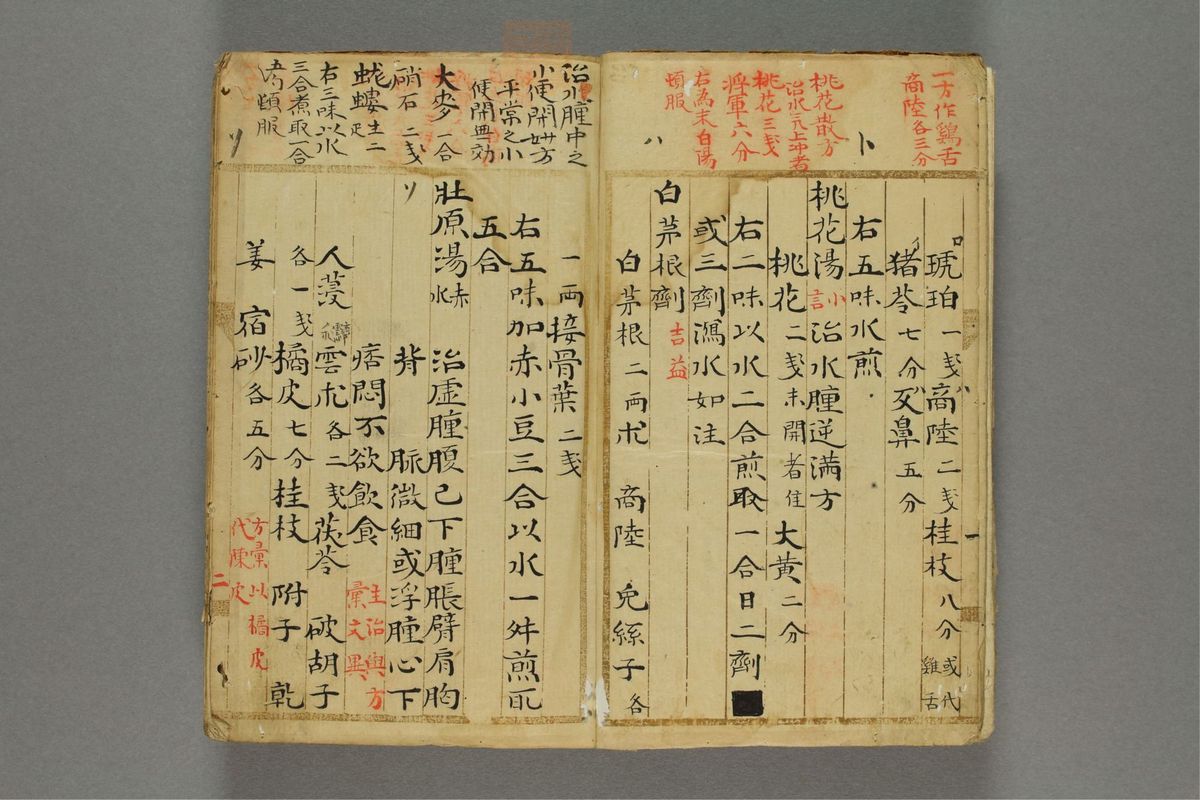 一方作鷄舌
商陸各三分
ト
桃花散方
治水氣上冲者
桃花三戔
將軍六分
右為末白湯
頓服
ハ
琥珀一戔商陸二戔桂枝八分或代
雞舌
猪苓七分 鼻五分
右五味水煎
桃花湯 治水腫逆満方
桃花二戔未開者佳 大黄二分
右二味以水二合煎取一合日二劑
或三劑瀉水如注
白茅根劑 吉益
白茅根二両朮 商陸 兔絲子各
一
治水腫中之
小便閉 方
平常之小
便閉 効
大麥一合
硝石二戔
螻 二
右三味以水
三合煮取一合
頓服
リ
一両接骨葉二戔
右五味加赤小豆三合以水一舛煎取
五合
リ
壮原湯 赤
水
治虚腫腹已下腫脹臂肩胸
背 脈微細或浮腫心下
痞悶不欲飲食 主治與方
彙文異
人蔆 雲朮各二戔茯苓 破胡子
各一戔橘皮七分桂枝 附子 乾
姜 宿砂各五分
方彙以橘皮
代陳皮
二